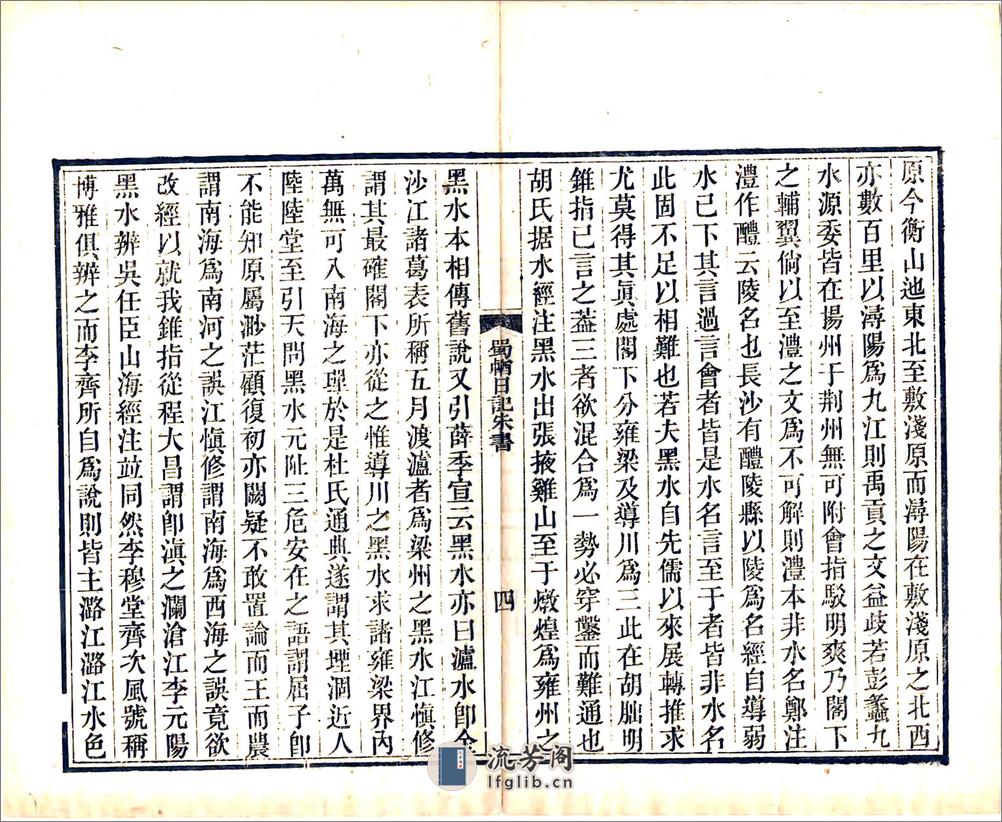 原今衡山迆東北至敷淺原而潯陽在敷淺原之北西
亦數百里以潯陽爲九江則禹貢之文益歧若彭蠡九
水源委皆在揚州于荆州無可附會指駁明爽乃閣下
之輔翼倘以至澧之文爲不可解則澧本非水名鄭注
澧作醴云陵名也長沙有醴陵縣以陵爲名經自導弱
水已下其言過言會者皆是水名言至于者皆非水名
此固不足以相難也若夫黑水自先儒以來展轉推求
尤莫得其眞處閣下分雍梁及導川爲三此在胡朏明
錐指已言之葢三者欲混合爲一勢必穿鑿而難通也
胡氏据水經注黑水出張掖雞山至于燉煌爲雍州之
蜀輶日記朱書
四
黑水本相傳舊說又引薛季宣云黑水亦曰瀘水卽金
沙江諸葛表所稱五月渡瀘者爲梁州之黑水江愼修
謂其最確閣下亦從之惟導川之黑水求諸雍梁界內
萬無可入南海之理於是杜氏通典遂謂其堙涸近人
陸陸堂至引天問黑水元趾三危安在之語謂屈子卽
不能知原屬渺茫顧復初亦闕疑不敢置論而王而農
謂南海爲南河之誤江愼修謂南海爲西海之誤竟欲
改經以就我錐指從程大昌謂卽滇之瀾滄江李元陽
黑水辨吳任臣山海經注並同然李穆堂齊次風號稱
博雅俱辨之而李齊所自爲說則皆主潞江潞江水色
流芳阁
lfglib.cn